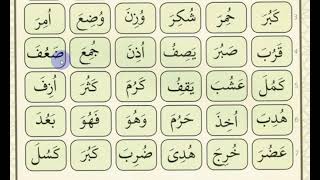 اُمِرَ وُضِعَ وُزِنَ شُكِرَ حُمِرَ كَبُرَ
ضَعُفَ جُمِعَ اُذِنَ يَصِفُ صَبُرَ قَرُبَ
اُزِفَ كَثُرَ كَرُمَ يَقِفُ عَشُبَ كَمُلَ
بَعُدَ فَهُوَ وَهُوَ حَرُمَ اُخِذَ هُدِبَ
كَسُلَ كَبُرَ ضُرِبَ هُدِىَ خُرِجَ عَضُرَ